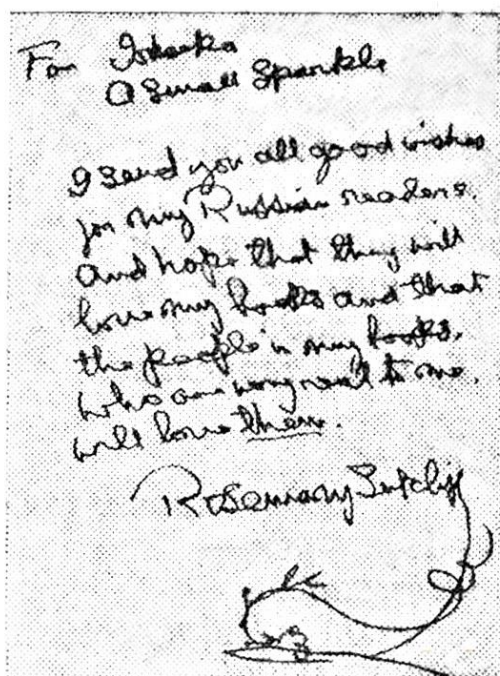 For Iskorka
A Small Sparkle
I send you all good wishes
for my Russian readers.
and hope that they will
love my books and that
the people in my books,
who are very real to me,
will love them.
Rosemary Sutcliff